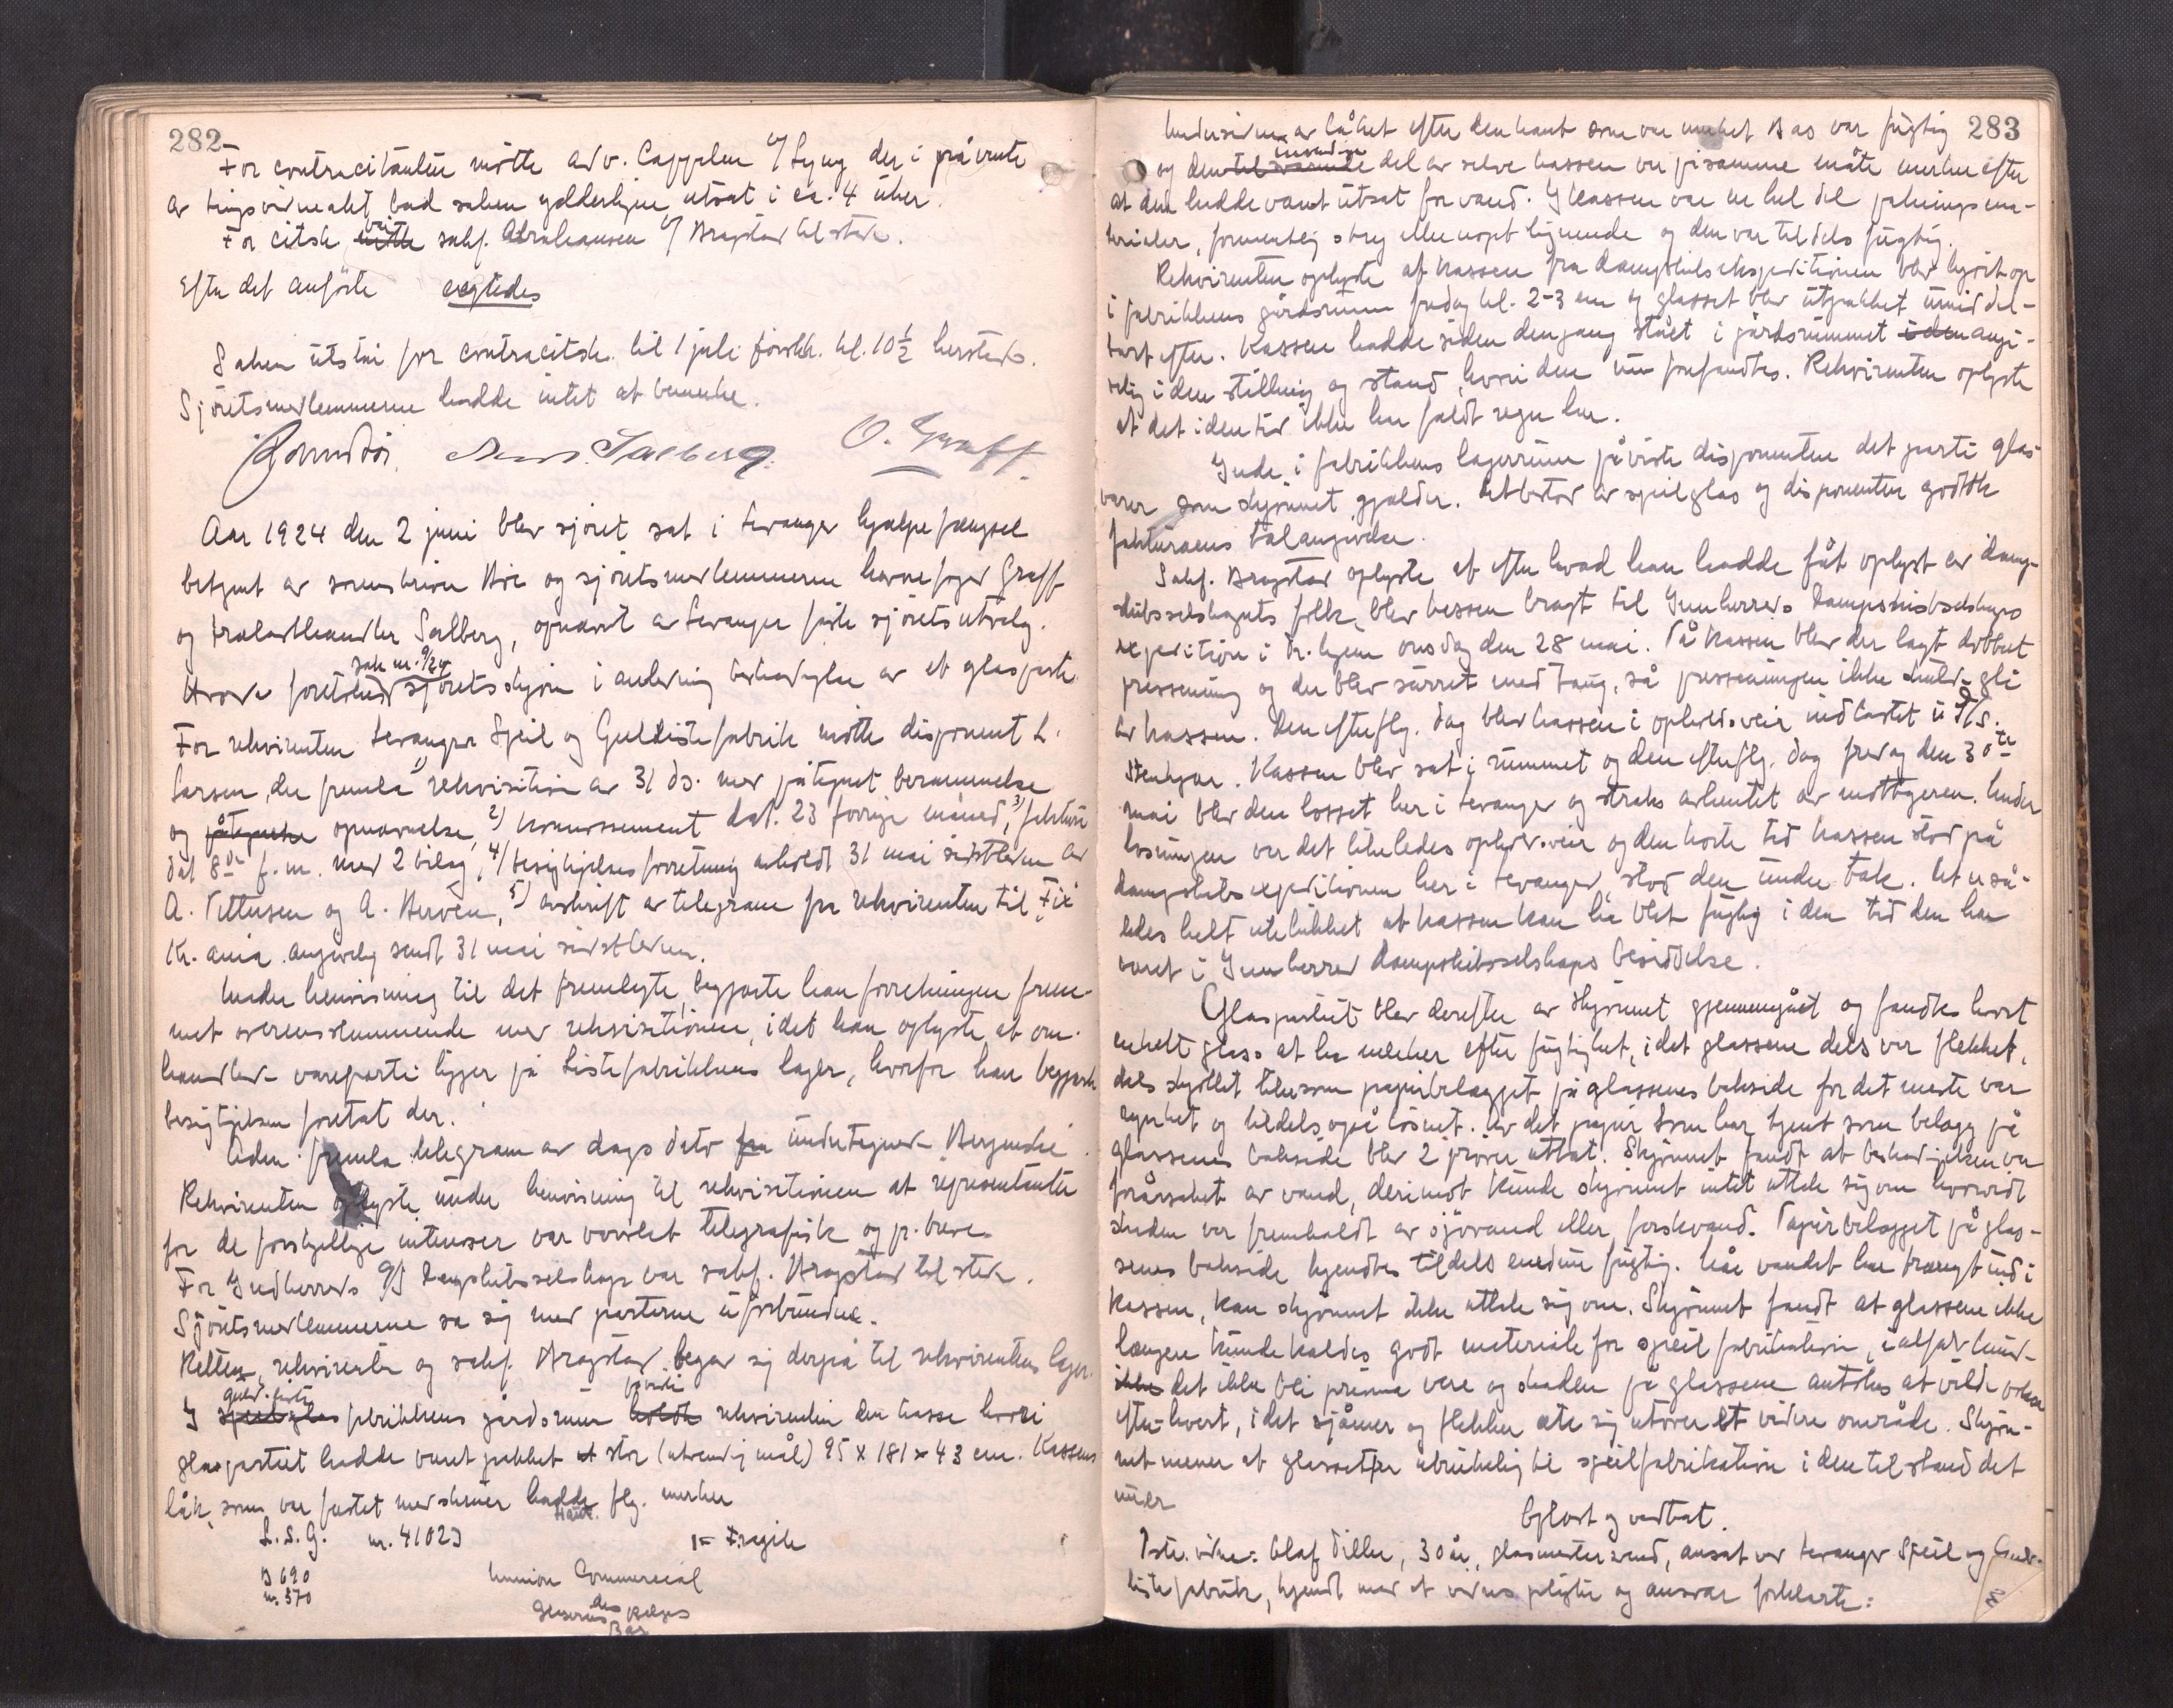 282
For contracitanten møtte adv. Cappelen v/ Lyng der i påvente
av tingsvidneaktet bad saken ytterligere utsat i ca. 4 uker.
For citsk. var møtte sakf. Abrahamsen v/ Bragstad tilstede.
Efter det anførte eragtedes
Saken utstår for contracitsk. til 1 juli førstk. kl. 10½ hersteds.
Sjøretsmedlemmerne hadde intet at bemerke.
Salberg. O. Graff.
Aar 1924 den 2 juni blev sjøret sat i Levanger hjælpefængsel
betjent av sorenskriver Hoe og sjøretsmedlemmerne havnefoged Graff
og trælasthandler Salberg, opnævnt av Levanger faste sjøretsutvalg.
Hvorda foretokes sak nr. 9/24 sjøretsskjøn i anledning beskadigelse av et glasparti.
For rekvirenten Levanger Speil og Guldlistefabrik møtte disponent L.
Larsen, der fremla 1) rekvisition av 31 ds. med påtegnet berammelse
og påtegnede opnævnelse, 2) konnossement dat. 23 forrige måned, 3) faktura
dat 8de f.m. med 2 bilag, 4) besigtigelsesforretning avholdt 31 mai sidstleden av
A. Pettersen og A. Herven, 5) avskrift av telegram fra rekvirenten til "Fix"
Kr.ania angivelig sendt 31 mai sidstleden.
Under henvisning til det fremlagte begjærte han forretningen frem-
met overensstemmende med rekvisitionen, idet han oplyste at om-
handlede vareparti ligger på Listefabrikkens lager, hvorfor han begjærte
besigtigelsen foretat der.
Aden fremla telegram av dags dato fra undertegnede Bergenske.
Rekvirenten oplyste under henvisning til rekvisitionen at repræsentanter
for de forskjellige interesser var varslet telegrafisk og pr. brev.
For Indherreds A/S Dampskibsselskap var sakf. Bragstad tilstede.
Sjøretsmedlemmerne sa sig med parterne uforbundne.
Retten, rekvirenten og sakf. Bragstad begav sig derpå til rekvirentens lager.
I speilglas guld-liste fabrikkens gårdsrum holdt påviste rekvirenten den kasse hvori
glaspartiet hadde været pakket et stor (utvendig mål) 95 x 181 x 43 cm. Kassens
låk, som var fæstet med skruer hadde flg. merker
L.S.G. nr. 41023 Haut. Fragile
B 690
nr. 370
Union Commercial
des
Glaceries Belges
Bas
283
Undersiden av låket efter den kant som var merket Bas var fugtig
og den tilsvarende indvendige del av selve kassen var på samme måte merker efter
at den hadde været utsat for vand. I kassen var en hel del pakningsma-
terialer, formentlig strå eller noget lignende og den var tildels fugtig.
Rekvirenten oplyste at kassen fra dampskibsekspeditionen blev kjørt op
i fabrikkens gårdsrum fredag kl. 2-3 em og glasset blev utpakket umiddel-
bart efter. Kassen hadde siden dengang stået i gårdsrummet i den angi-
velig i den stilling og stand, hvori den nu forefandtes. Rekvirenten oplyste
at det i den tid ikke har faldt regn her.
Inde i fabrikkens lagerrum påviste disponenten det parti glas-
varer som skjønnet gjælder. Det bestod av speilglas og disponenten godtok
fakturaens talangivelse.
Sakf. Bragstad oplyste at efter hvad han hadde fåt oplyst av damp-
skibsselskapets folk, blev kassen bragt til Innherreds Dampskibsselskaps
expedition i Tr.hjem onsdag den 28 mai. På kassen blev der lagt dobbelt
presenning og der blev surret med taug, så presenningen ikke skulde gli
av kassen. Den efterflg. dag blev kassen i opholdsveir indlastet i D/S.
Steinkjær. Kassen blev sat i rummet og den efterflg. dag fredag den 30te
mai blev den losset her i Levanger og straks avhentet av mottageren. Under
losningen var det likeledes opholdsveir og den korte tid kassen stod på
dampskibsexpeditionen her i Levanger, stod den under tak. Det er så-
ledes helt utelukket at kassen kan ha blit fugtig i den tid den har
været i Innherred Dampskibsselskaps besiddelse.
Glaspartiet blev derefter av skjønnet gjennemgået og fandtes hvert
enkelt glass at ha merker efter fugtighet, idet glassene dels var flekket,
dels skjoldet likesom papirbelægget på glassenes bakside for det meste var
rynket og tildels også løsnet. Av det papir som har tjent som belægg på
glassenes bakside blev 2 prøver uttat. Skjønnet fandt at beskadigelsen var
forårsaket av vand, derimot kunde skjønnet intet uttale sig om hvorvidt
skaden var fremkaldt av sjøvand eller ferskvand. Papirbelægget på glas-
senes bakside kjendtes tildels endnu fugtig. Når vandet har trængt ind i
kassen, kan skjønnet ikke uttale sig om. Skjønnet fandt at glassene ikke
længere kunde kaldes godt materiale for speilfabrikation, i alfald kund-
ikke det ikke bli prima vare og skaden på glassene antokes at vilde vokse
efterhvert, idet skjåmer og flekker æte sig utover et videre område. Skjøn-
net mener at glasset er ubrukelig til speilfabrikation i den tilstand det
nu er
Oplæst og vedtat.
1ste. vidne: Olaf Tiller, 30 år, glasmestersvend, ansat ved Levanger Speil og Guld-
listefabrik, kjendt med et vidnes pligter og ansvar forklarte: